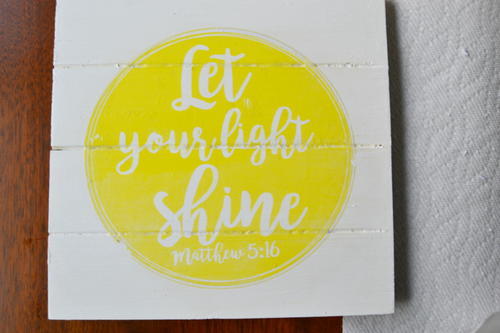 Let
your light
shine
Matthew 5:16